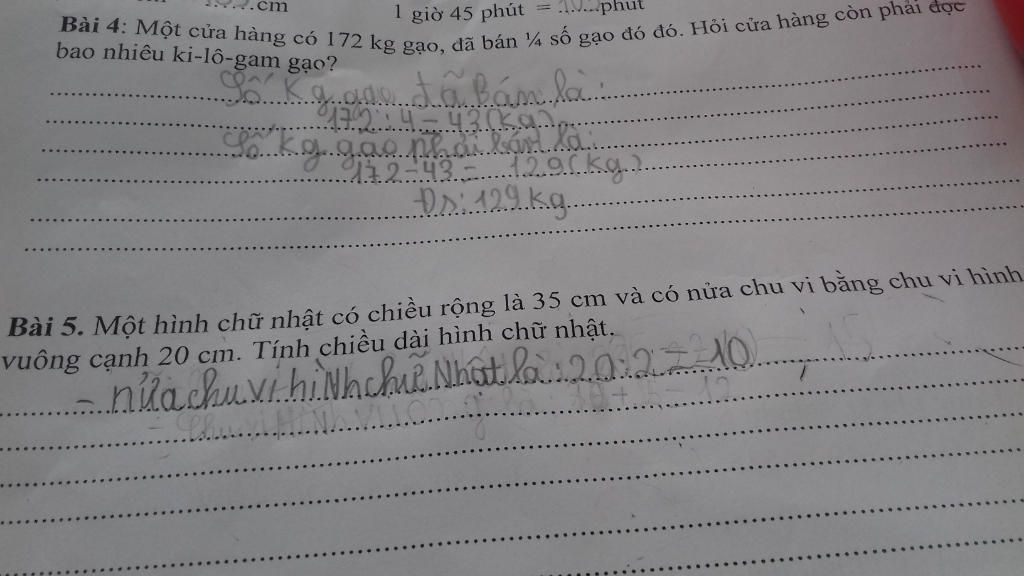 .cm
1 giờ 45 phút = phút
Bài 4: Một cửa hàng có 172 kg gạo, đã bán ¼ số gạo đó đó. Hỏi cửa hàng còn phải đọc
bao nhiêu ki-lô-gam gạo?
Số kg gạo đã Bán là:
172:4=43(kg)
Số kg gạo phải bán là:
172-43= 129(kg)
Đs: 129 kg
Bài 5. Một hình chữ nhật có chiều rộng là 35 cm và có nửa chu vi bằng chu vi hình
vuông cạnh 20 cm. Tính chiều dài hình chữ nhật.
- nửa chu vi hìNh chữ Nhật là: 20:2=10